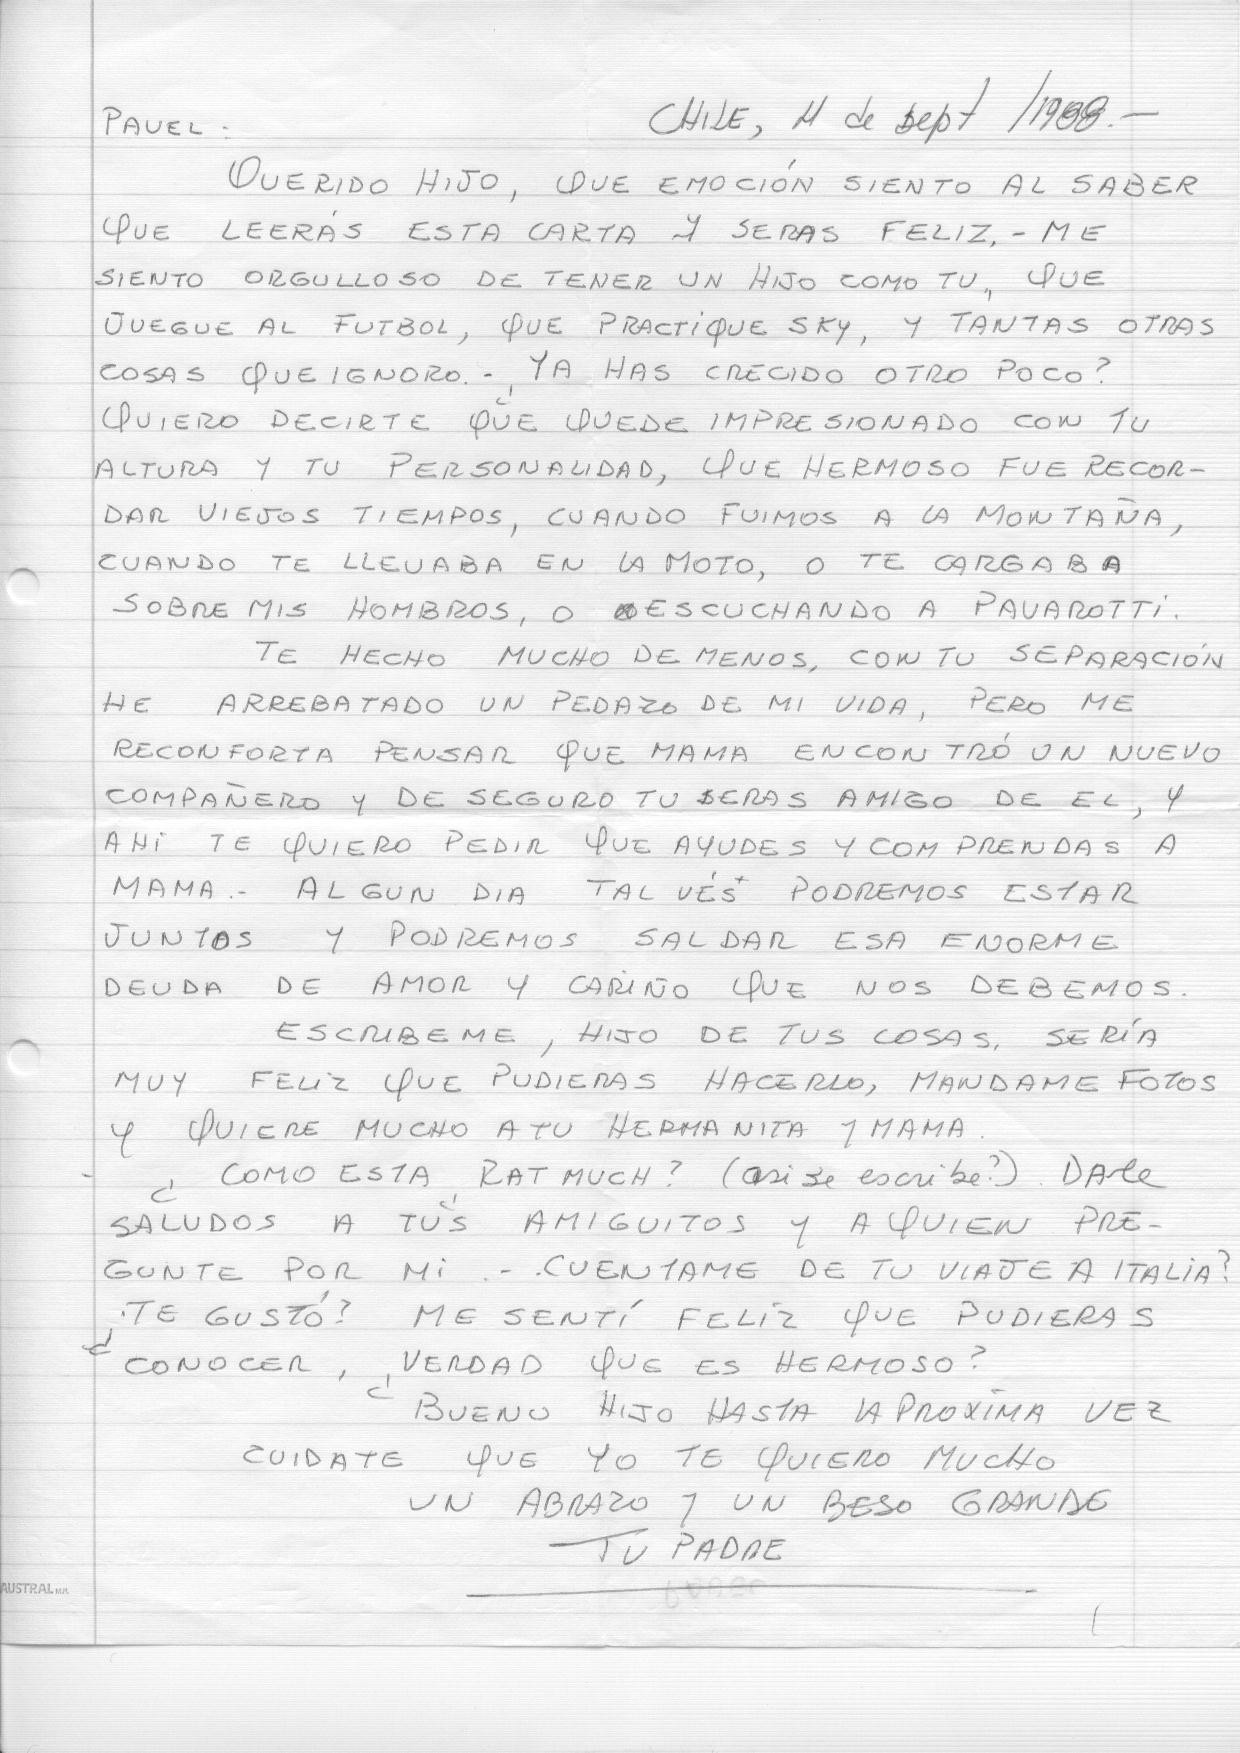 PAVEL: CHILE, 11 de sept /1988.-
QUERIDO HIJO, QUE EMOCIÓN SIENTO AL SABER
QUE LEERÁS ESTA CARTA Y SERAS FELIZ.- ME
SIENTO ORGULLOSO DE TENER UN HIJO COMO TU, QUE
JUEGUE AL FUTBOL, QUE PRACTIQUE SKY, Y TANTAS OTRAS
COSAS QUE IGNORO.- ¿YA HAS CRECIDO OTRO POCO?
QUIERO DECIRTE QUE QUEDE IMPRESIONADO CON TU
ALTURA Y TU PERSONALIDAD, QUE HERMOSO FUE RECOR-
DAR VIEJOS TIEMPOS, CUANDO FUIMOS A LA MONTAÑA,
CUANDO TE LLEVABA EN LA MOTO, O TE CARGABA
SOBRE MIS HOMBROS, O ESCUCHANDO A PAVAROTTI.
TE HECHO MUCHO DE MENOS, CON TU SEPARACIÓN
HE ARREBATADO UN PEDAZO DE MI VIDA, PERO ME
RECONFORTA PENSAR QUE MAMA ENCONTRÓ UN NUEVO
COMPAÑERO Y DE SEGURO TU SERAS AMIGO DE EL, Y
AHI TE QUIERO PEDIR QUE AYUDES Y COMPRENDAS A
MAMA.- ALGUN DIA TAL VÉS PODREMOS ESTAR
JUNTOS Y PODREMOS SALDAR ESA ENORME
DEUDA DE AMOR Y CARIÑO QUE NOS DEBEMOS.
ESCRIBEME, HIJO DE TUS COSAS, SERÍA
MUY FELIZ QUE PUDIERAS HACERLO, MANDAME FOTOS
Y QUIERE MUCHO A TU HERMANITA Y MAMA.
- ¿COMO ESTA RATMUCH? (¿asi se escribe?). DAle
SALUDOS A TUS AMIGUITOS Y A QUIEN PRE-
GUNTE POR MI.- CUENTAME DE TU VIAJE A ITALIA?
¿TE GUSTÓ? ME SENTÍ FELIZ QUE PUDIERAS
CONOCER, ¿VERDAD QUE ES HERMOSO?
BUENO HIJO HASTA LA PROXIMA VEZ
CUIDATE QUE YO TE QUIERO MUCHO
UN ABRAZO Y UN BESO GRANDE
TU PADRE
AUSTRAL M.R.